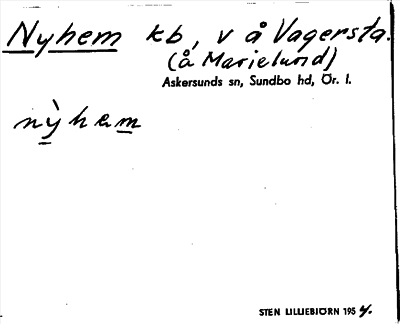 Nyhem kb, v å Vagersta.
(å Marielund)
Askersunds sn, Sundbo hd, Ör. l.
nỳhem
STEN LILLIEBJÖRN 1954.